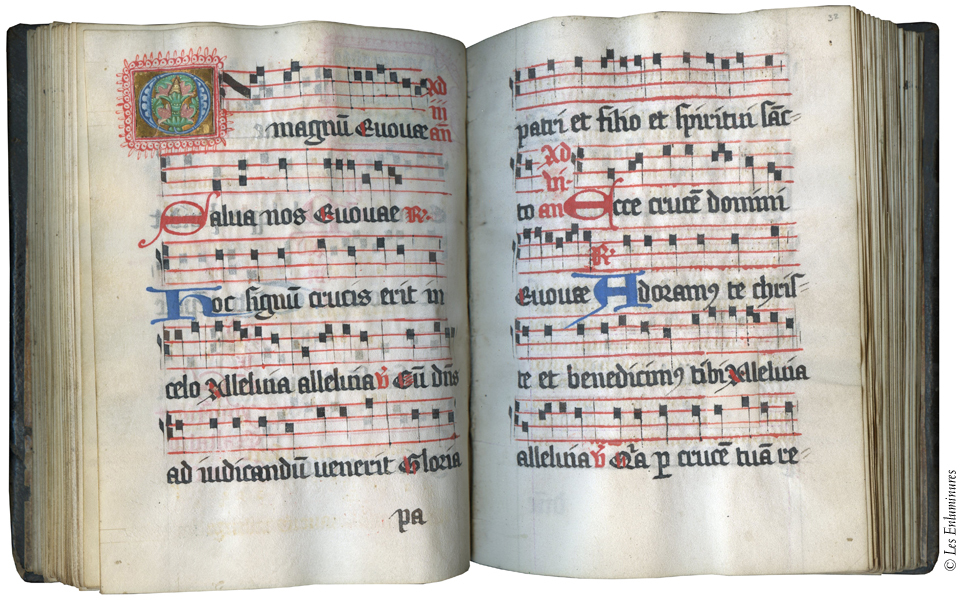 O magnū Euouae Ad iii an̄
Salua nos Euouae R.
Hoc signū crucis erit in
celo Alleluia alleluia v̄ Cū dn̄s
ad iudicandū uenerit Gloria
pa
32
patri et filio et spiritui sāc=
Ad vi.
to an Ecce crucē domini
Euouae R. Adoramꝰ te chris=
te et benedicimꝰ tibi Alleluia
alleluia v̄ Qͥa ꝑ crucē tuā re=
© Les Enluminures